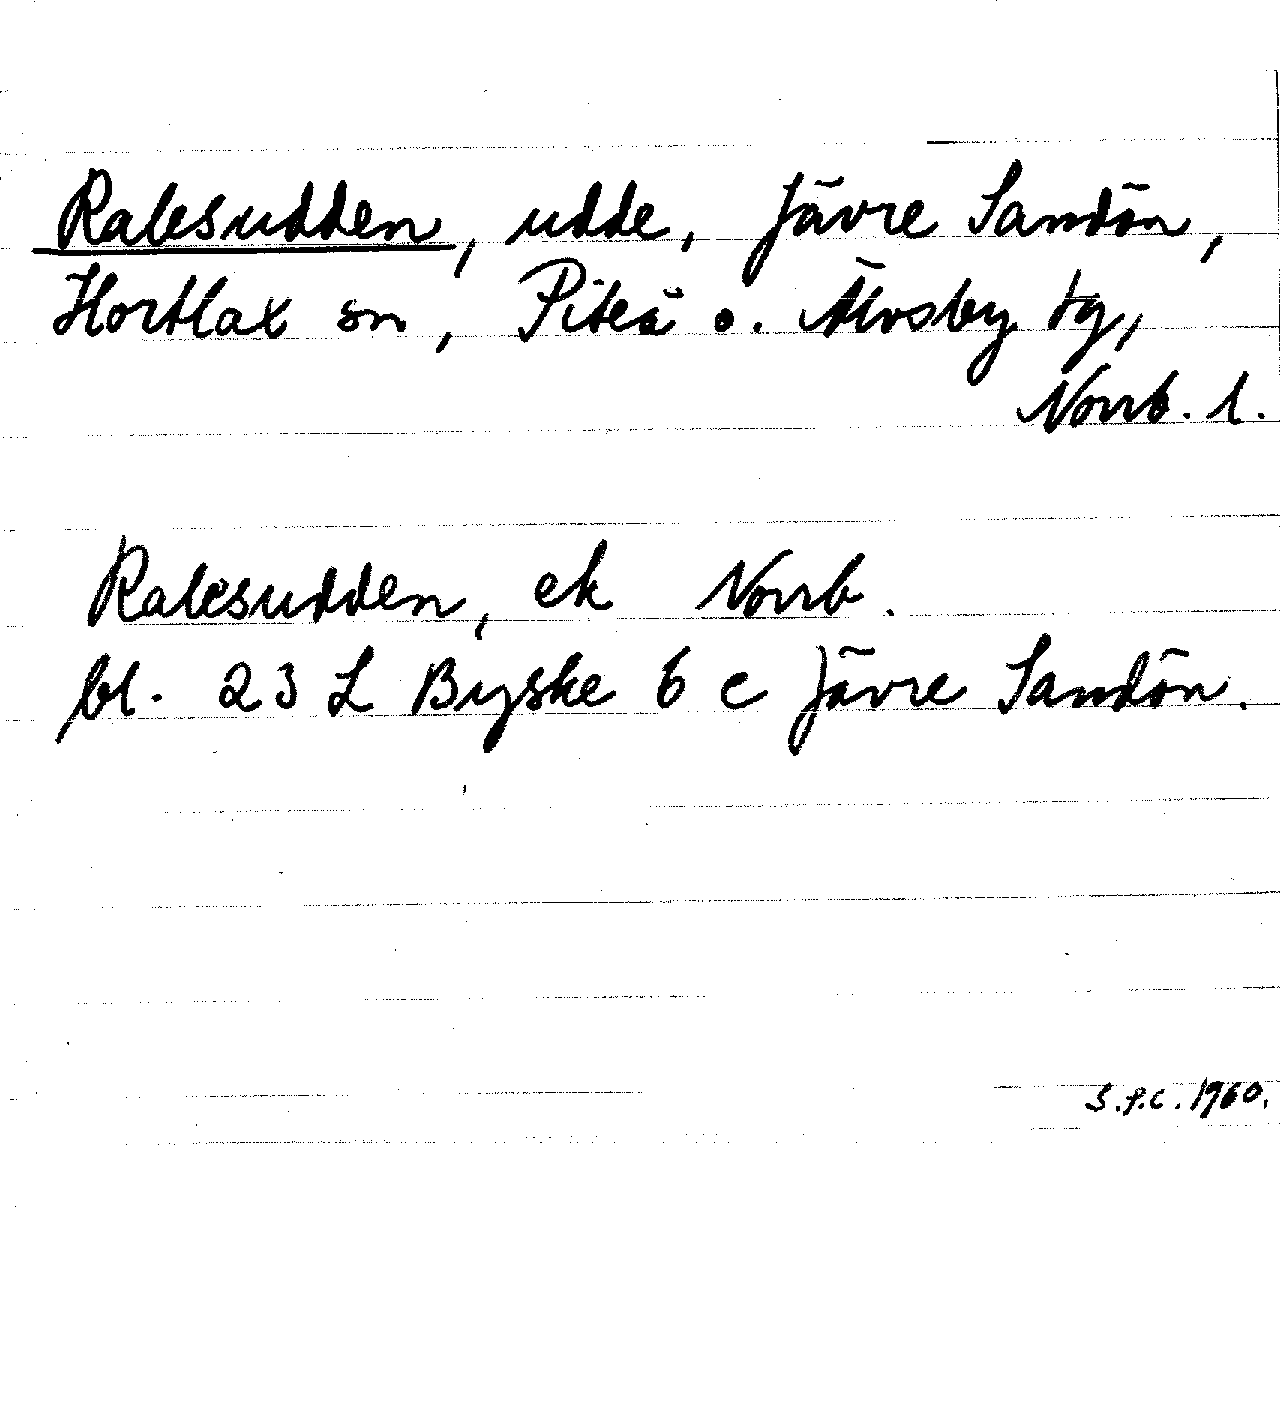 Ralesudden, udde, Jävre Sandön,
Hortlax sn, Piteå o. Älvsby tg,
Norrb. l.
Ralesudden, ek Norrb.
bl. 23 L Byske 6 c Jävre Sandön.
S.P.C. 1960.